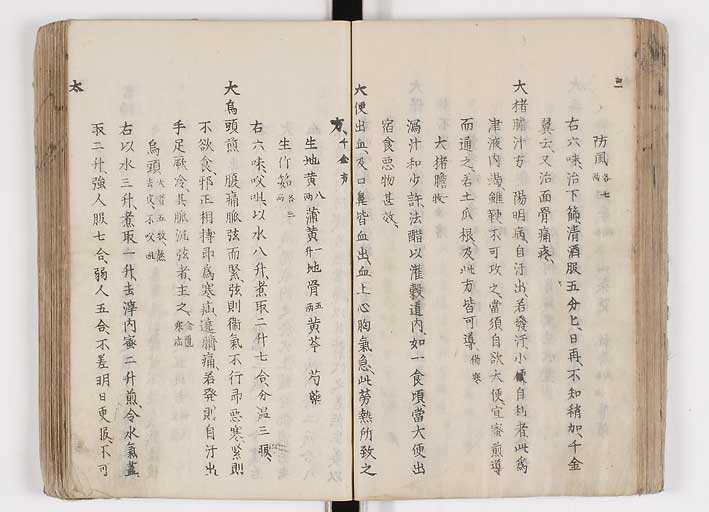 三
防風各七両
右六味、治下篩、清酒服五分匕、日再、不知稍加、千金
翼云、又治面骨痛疼、
大猪膽汁方 陽明病、自汗出、若發汗、小便自利者、此為
津液内竭、雖鞕不可攻之、當須自欲大便、宜蜜煎導
而通之、若土瓜根及此方皆可導、傷寒
大猪膽一枚
瀉汁、和少許法醋、以灌穀道内、如一食頃、當大便出
宿食惡物甚效、
大便出血、及口鼻皆血出、血上心胸氣急、此勞熱所致之
方、千金方
生地黄八両 蒲黄一升 地骨五両 黄芩 芍藥
生竹茹各三両
右六味、㕮咀、以水八升、煮取二升七合、分温三服、
大烏頭煎 腹痛、脈弦而緊、弦則衛氣不行、即惡寒、緊則
不欲食、邪正相搏、即為寒疝、遶臍痛、若發則自汗出
手足厥冷、其脈沉弦者、主之、金匱寒疝
烏頭大者五枚、熬去皮、不㕮咀
右以水三升、煮取一升、去滓、内蜜二升、煎、令水氣盡、
取二升、強人服七合、弱人五合、不差、明日更服、不可
太